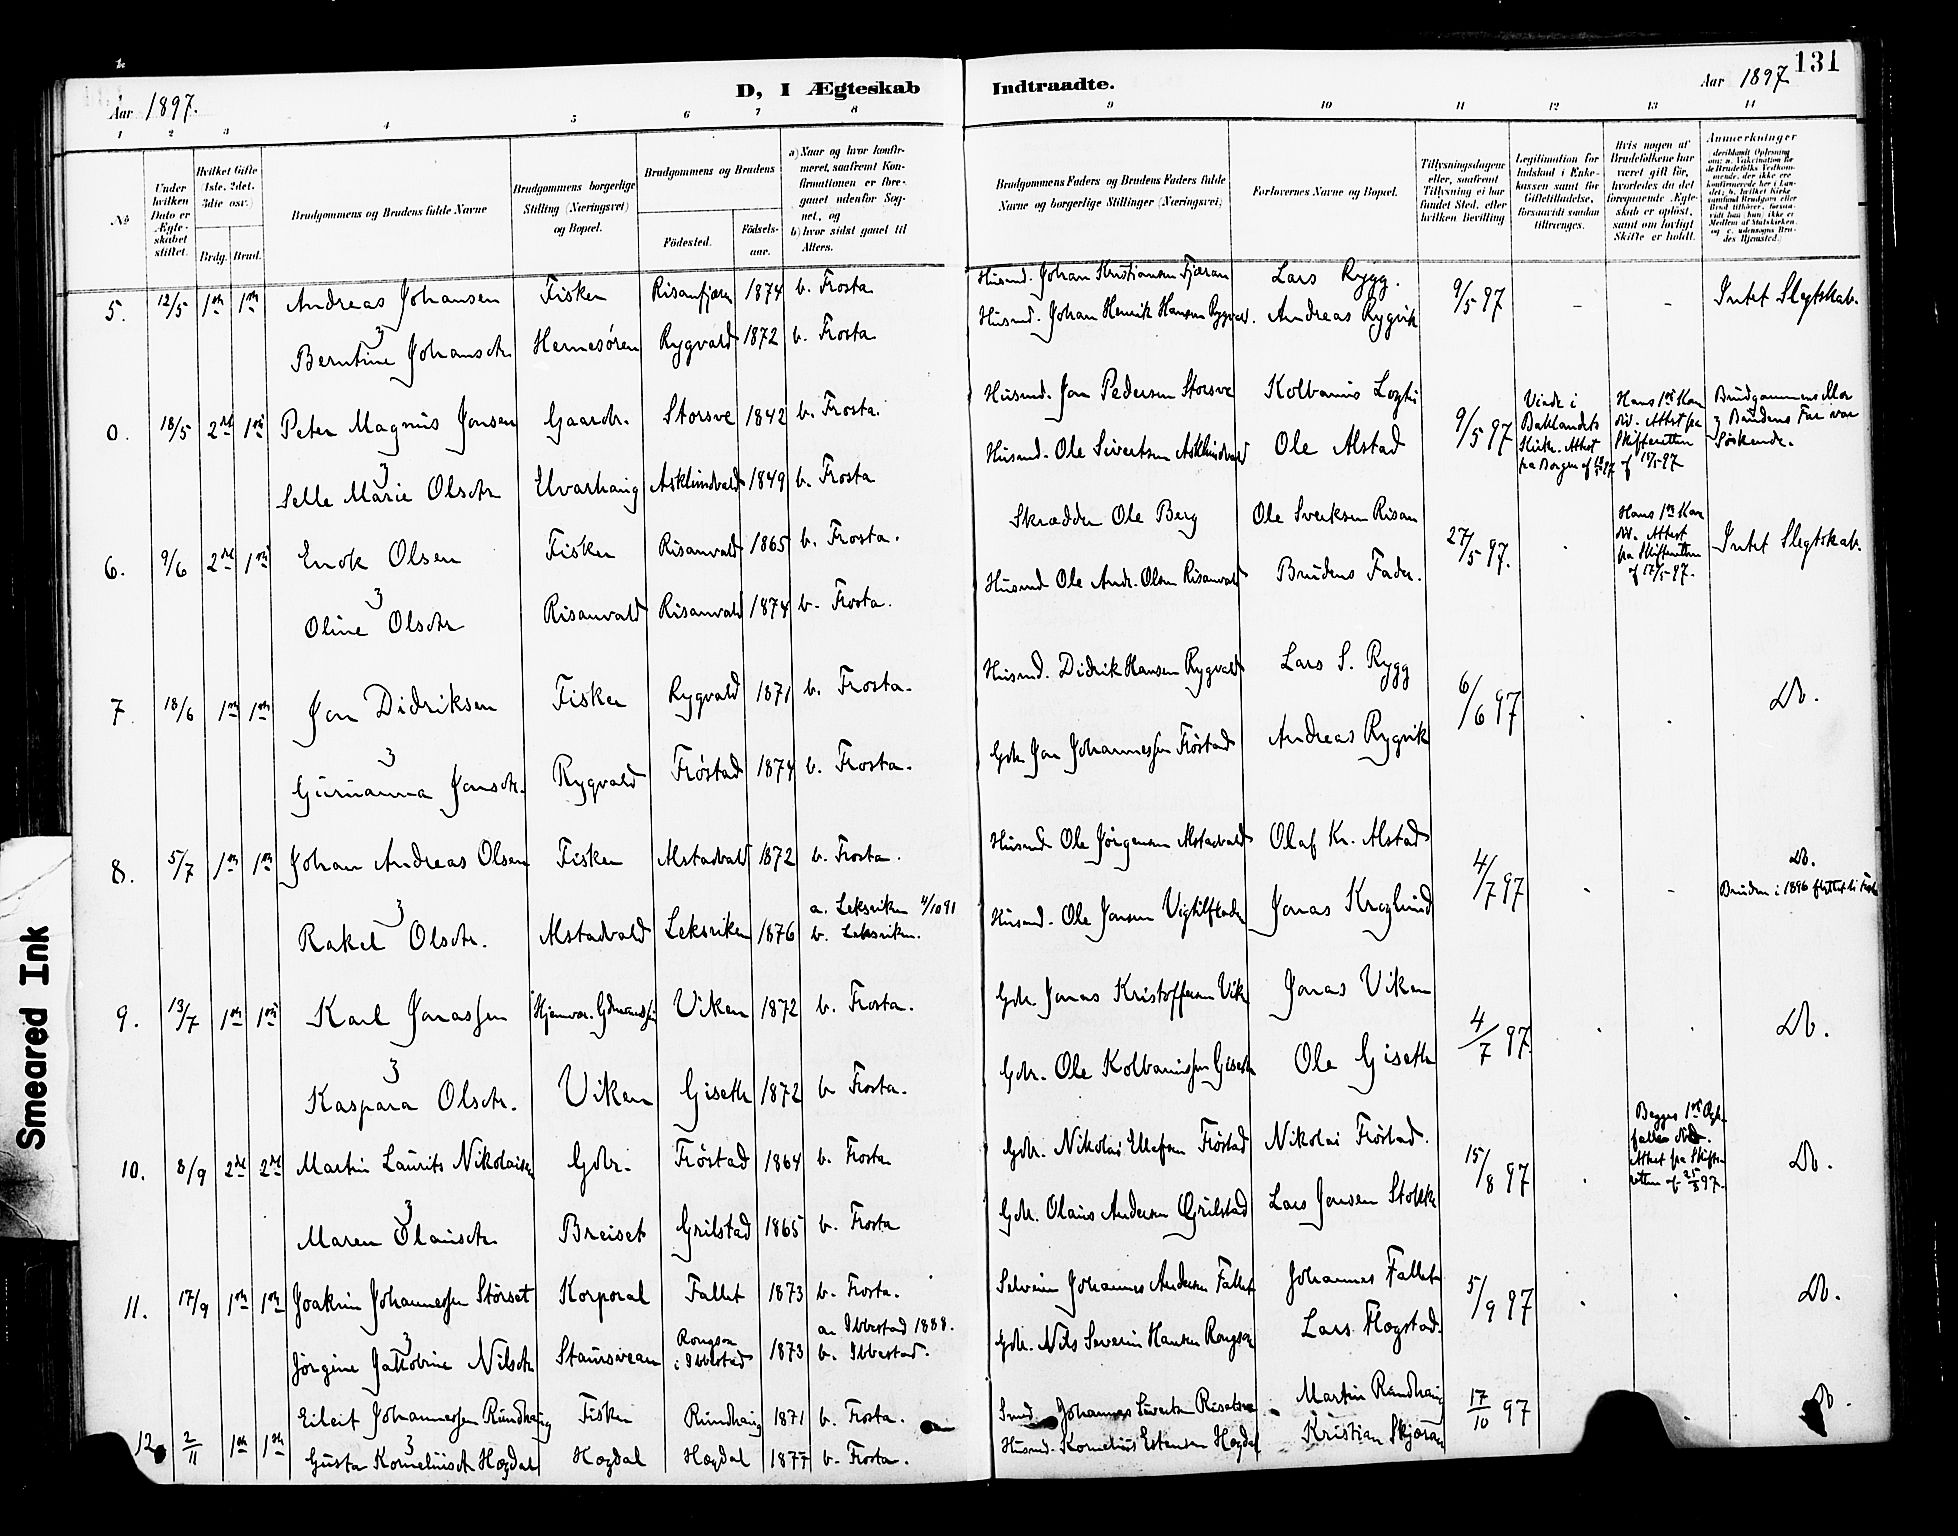 131
Aar 1897.
D, I Ægteskab Indtraadte.
Aar 1897
1 2 3 4 5 6 7 8 9 10 11 12 13 14
No
Under hvilken Dato er Ægteskabet stiftet.
Hvilket Gifte (1ste, 2det, 3die osv.)
Brdg. Brud.
Brudgommens og Brudens fulde Navne
Brudgommens borgerlige Stilling (Næringsvei) og Bopæl.
Brudgommens og Brudens
Födested.
Födsels-aar.
a) Naar og hvor konfirmeret, saafremt Konfirmationen er foregaaet udenfor Sognet, og
b) hvor sidst gaaet til Alters.
Brudgommens Faders og Brudens Faders fulde Navne og borgerlige Stillinger (Næringsvei)
Forlovernes Navne og Bopæl.
Tillysningsdagene eller, saafremt Tillysning ei har fundet Sted, efter hvilken Bevilling
Legitimation for Indskud i Enkekassen samt for Giftetilladelse, forsaavidt saadan tiltrænges.
Hvis nogen af Brudefolkene har været gift før, hvorledes da det foregaaende Ægteskab er opløst, samt om lovligt Skifte er holdt.
Anmærkninger
5. 12/5 1ste 1ste Andreas Johansen Fisker Risanfjæren 1874 b. Frosta Husmd. Johan Kristiansen Fjæran Lars Rygg. 9/5 97 – – Intet Slegtskab.
& Berntine Johansdtr. Hernesøren Rygvald 1872 b. Frosta Husmd. Johan Henrik Hansen Rygvald. Andreas Rygvik
0. 18/5 2det 1ste Peter Magnus Jonsen Gaardbr. Storsve 1842 b. Frosta. Husmd. Jon Pedersen Storsve Kolbanus Logti 9/5 97 Viede i Baklandets Kirke. Attest fra Borgen af Hans 1ste Kone død. Attest fra Skifteretten af 15/5 97 Brudgommens Mor og Brudens Far var Söskende.
& Selle Marie Olsdtr. Elvarhaug Asklundvald 1849 b. Frosta Husmd. Ole Sivertsen Asklundvald Ole Alstad
6. 9/6 2det 1ste Enok Olsen Fisker Risanvald 1865 b. Frosta. Skrædder Ole Berg Ole Sverksen Risan 27/5 97. Hans 1ste Kone død. Attest fra Skifteretten af 17/5 97. Intet Slegtskab.
& Oline Olsdtr. Risanvald Risanvald 1874 b. Frosta. Husmd. Ole Andr. Olsen Risanvald Brudens Fader.
7. 18/6 1ste 1ste Jon Didriksen Fisker Rygvald 1871 b. Frosta. Husmd. Didrik Hansen Rygvald Lars S. Rygg 6/6 97 Do.
& Gurianna Jonsdtr. Rygvald Fröstad 1874 b. Frosta. Gbr. Jon Johannessen Fröstad Andreas Rygvik
8. 5/7 1ste 1ste Johan Andreas Olsen Fisker Alstadvald 1872 b. Frosta. Husmd. Ole Jörgensen Alstadvald Olaf Kr. Alstad 4/7 97 – Do.
Bruden i 1896 flyttet til Frosta
& Rakel Olsdtr. Alstadvald Leksviken 1876 a. Leksviken 4/10 91
b. Leksviken. Husmd. Ole Jonsen Jonas Kroglund
9. 13/7 1ste 1ste Karl Jonassen Viken 1872 b. Frosta. Gbr. Jonas Kristoffersen Viken Jonas Viken 4/7 97. Do.
& Kaspara Olsdtr. Viken Giseth 1872 b. Frosta. Gbr. Ole Kolbanussen Giseth Ole Giseth
10. 8/9 2det 2det Martin Laurits Nikolaisen Gbr. Fröstad 1864 b. Frosta Gbr. Nikolai Ellefsen Fröstad Nikolai Fröstad. 15/8 97 Begges 1ste død. Attest fra Skifteretten af 25/8 97. Do.
& Maren Olausdtr. Breiset Grilstad 1865 b. Frosta Gbr. Olaus Andersen Grilstad Lars Jonsen Stokke
11. 17/9 1ste 1ste Joakim Johannessen Störset Korporal Fallet 1873 b. Frosta. Selveier Johannes Andersen Fallet Johannes Fallet 5/9 97 Do.
& Jörgine Jakobine Nilsdtr. Stausvean Rongsøn i Ibbestad 1873 a. Ibbestad 1888.
b. Ibbestad. Gbr. Nils Severin Hansen Rongsøn Lars Flogstad.
12 2/11 1ste 1ste Eileit Johannessen Rundhaug Fisker Rundhaug 1871 b. Frosta. Johannes Sivertsen Martin Rundhaug 17/10 97 Do.
& Gusta Korneliusdtr. Hogdal Hogdal Hogdal 1877 b. Frosta. Husmd. Kornelius Estensen Hogdal Kristian Skjæran
Smeared Ink